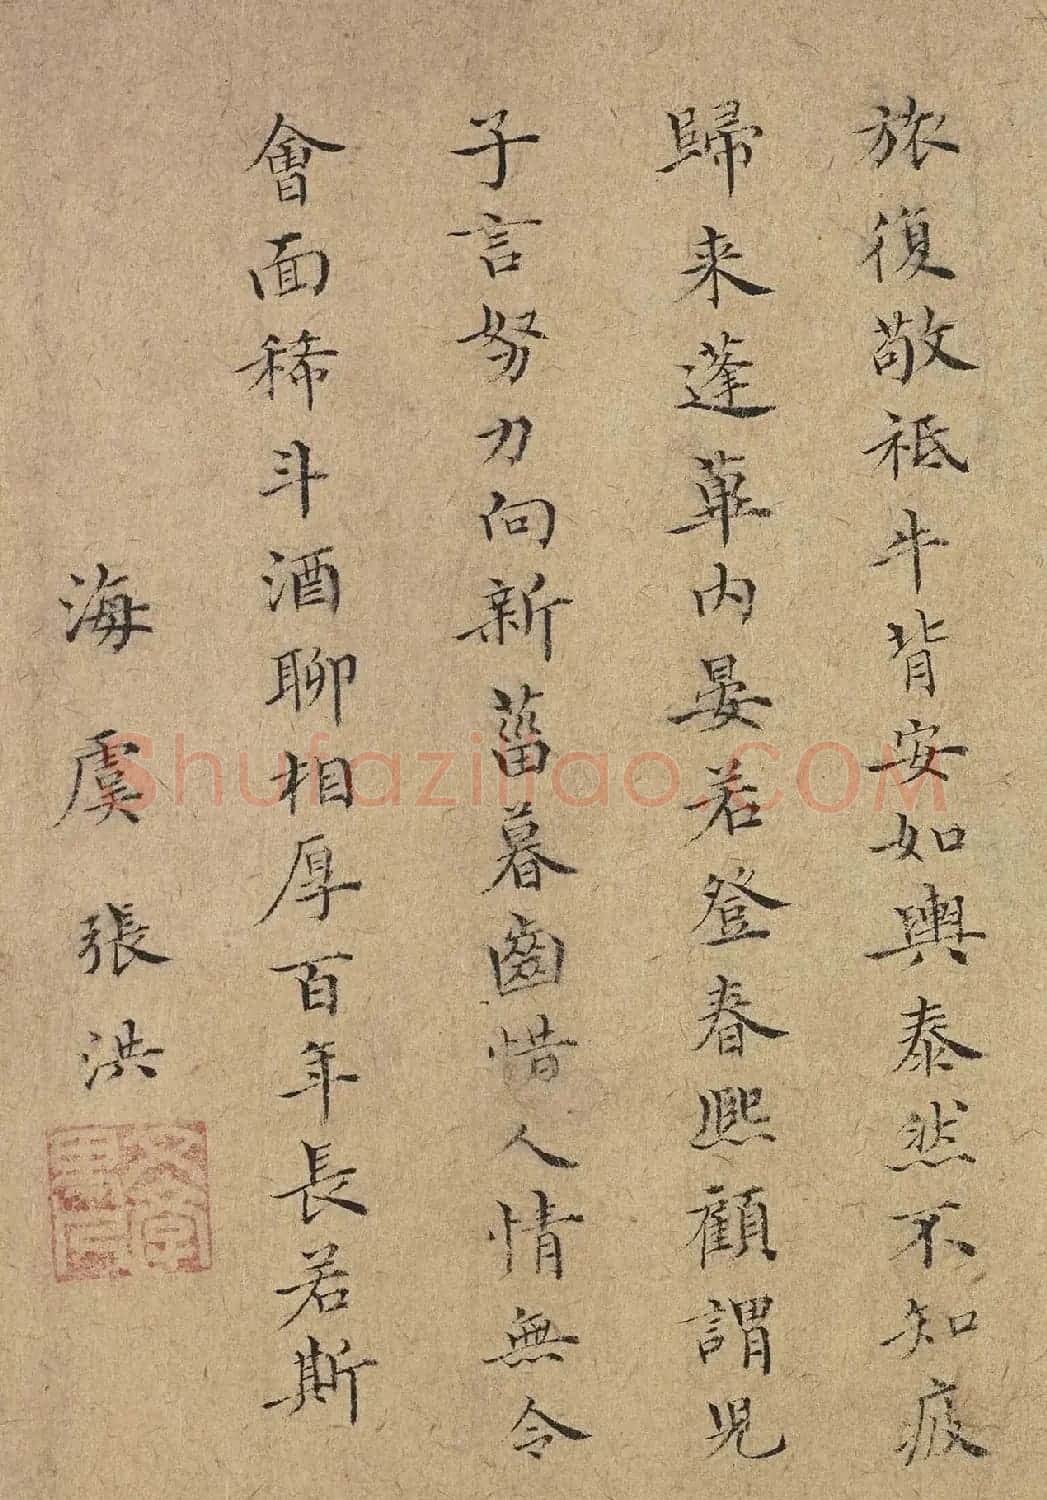 旅復敬祗牛背安如輿泰然不知疲
歸来蓬蓽内晏若登春熙顧謂児
子言努力向新菑暮齒惜人情無令
會面稀斗酒聊相厚百年長若斯
海虞張洪
Shufaziliao.COM